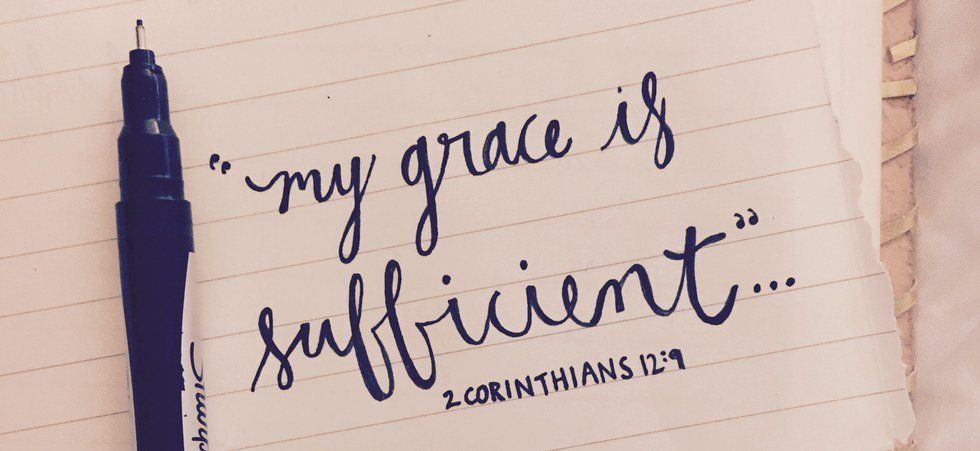 “my grace is
sufficient”...
2 CORINTHIANS 12:9